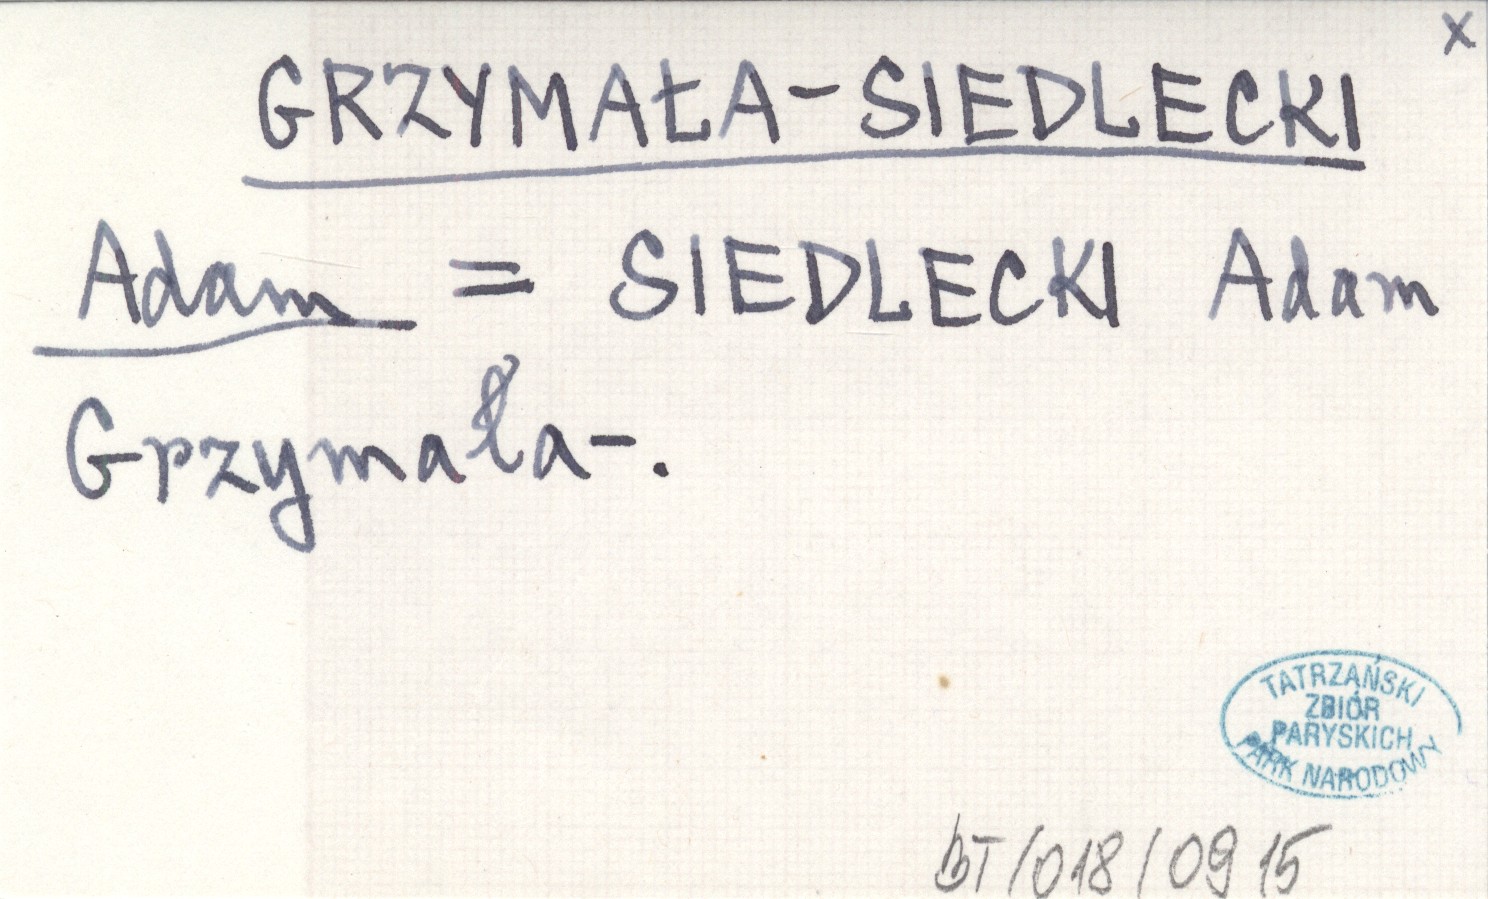 x
GRZYMAŁA-SIEDLECKI
Adam = SIEDLECKI Adam
Grzymała-.
TATRZAŃSKI
ZBIÓR
PARYSKICH
PARK NARODOWY
bT/018/0915